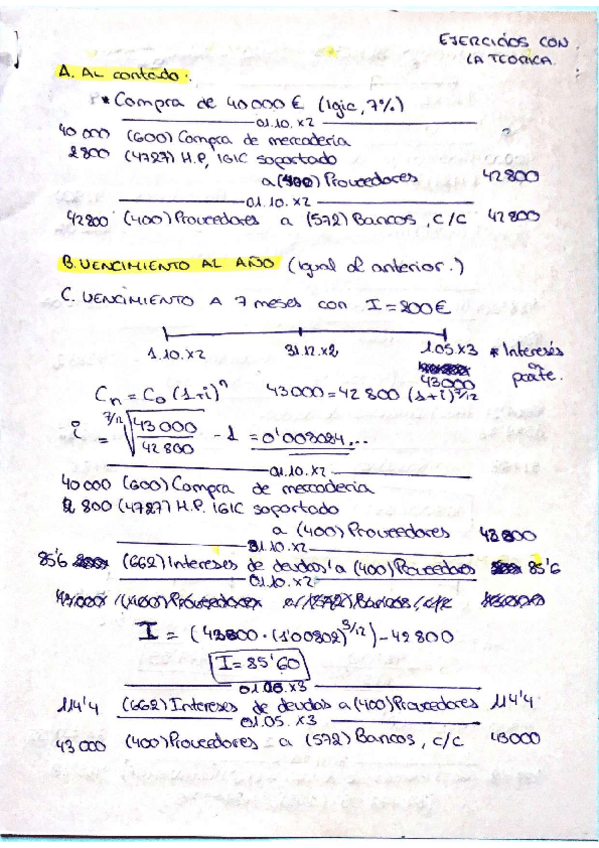 EJERCICIOS CON
LA TEORICA.
A. AL contado.
* Compra de 40000 € (Igic, 7%)
01.10.x2
40 000 (600) Compra de mercaderia
2800 (4727) H.P. IGIC soportado
a (400) Proveedores 42800
01.10.x2
42800 (400) Proveedores a (572) Bancos, c/c 42800
B. VENCIMIENTO AL AÑO (igual al anterior.)
C. VENCIMIENTO A 7 meses con I = 200€
1.10.x2 31.12.x2 1.05.x3 * Interesés
43000 parte.
Cn = Co (1+i)^n 43000 = 42 800 (1+i)^7/12
i = 7/12√(43 000 / 42 800) - 1 = 0'008024...
01.10.x2
40000 (600) Compra de mercaderia
2 800 (4727) H.P. IGIC soportado
a (400) Proveedores 42800
31.10.x2
85'6 (662) Intereses de deudas a (400) Proveedores 85'6
01.10.x2
43000 (400) Proveedores a (572) Bancos, c/c 43000
I = (42800 · (1'00802)^3/12) - 42800
I = 85'60
01.05.x3
114'4 (662) Intereses de deudas a (400) Proveedores 114'4
01.05.x3
43000 (400) Proveedores a (572) Bancos, c/c 43000